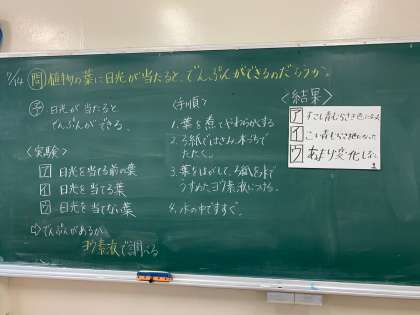 7/14 問 植物の葉に日光が当たると、でんぷんができるのだろうか。
予 日光が当たると
でんぷんができる。
<実験>
ア 日光を当てる前の葉
イ 日光を当てる葉
ウ 日光を当てない葉
⇨でんぷんがあるか
ヨウ素液で調べる
<手順>
1. 葉を煮てやわらかくする
2. ろ紙ではさみ、木づちで
たたく。
3. 葉をはがして、ろ紙を水で
うすめたヨウ素液につける。
4. 水の中ですすぐ。
<結果>
ア すこし青むらさき色になった
イ こい青むらさき色になった
ウ あまり変化しな